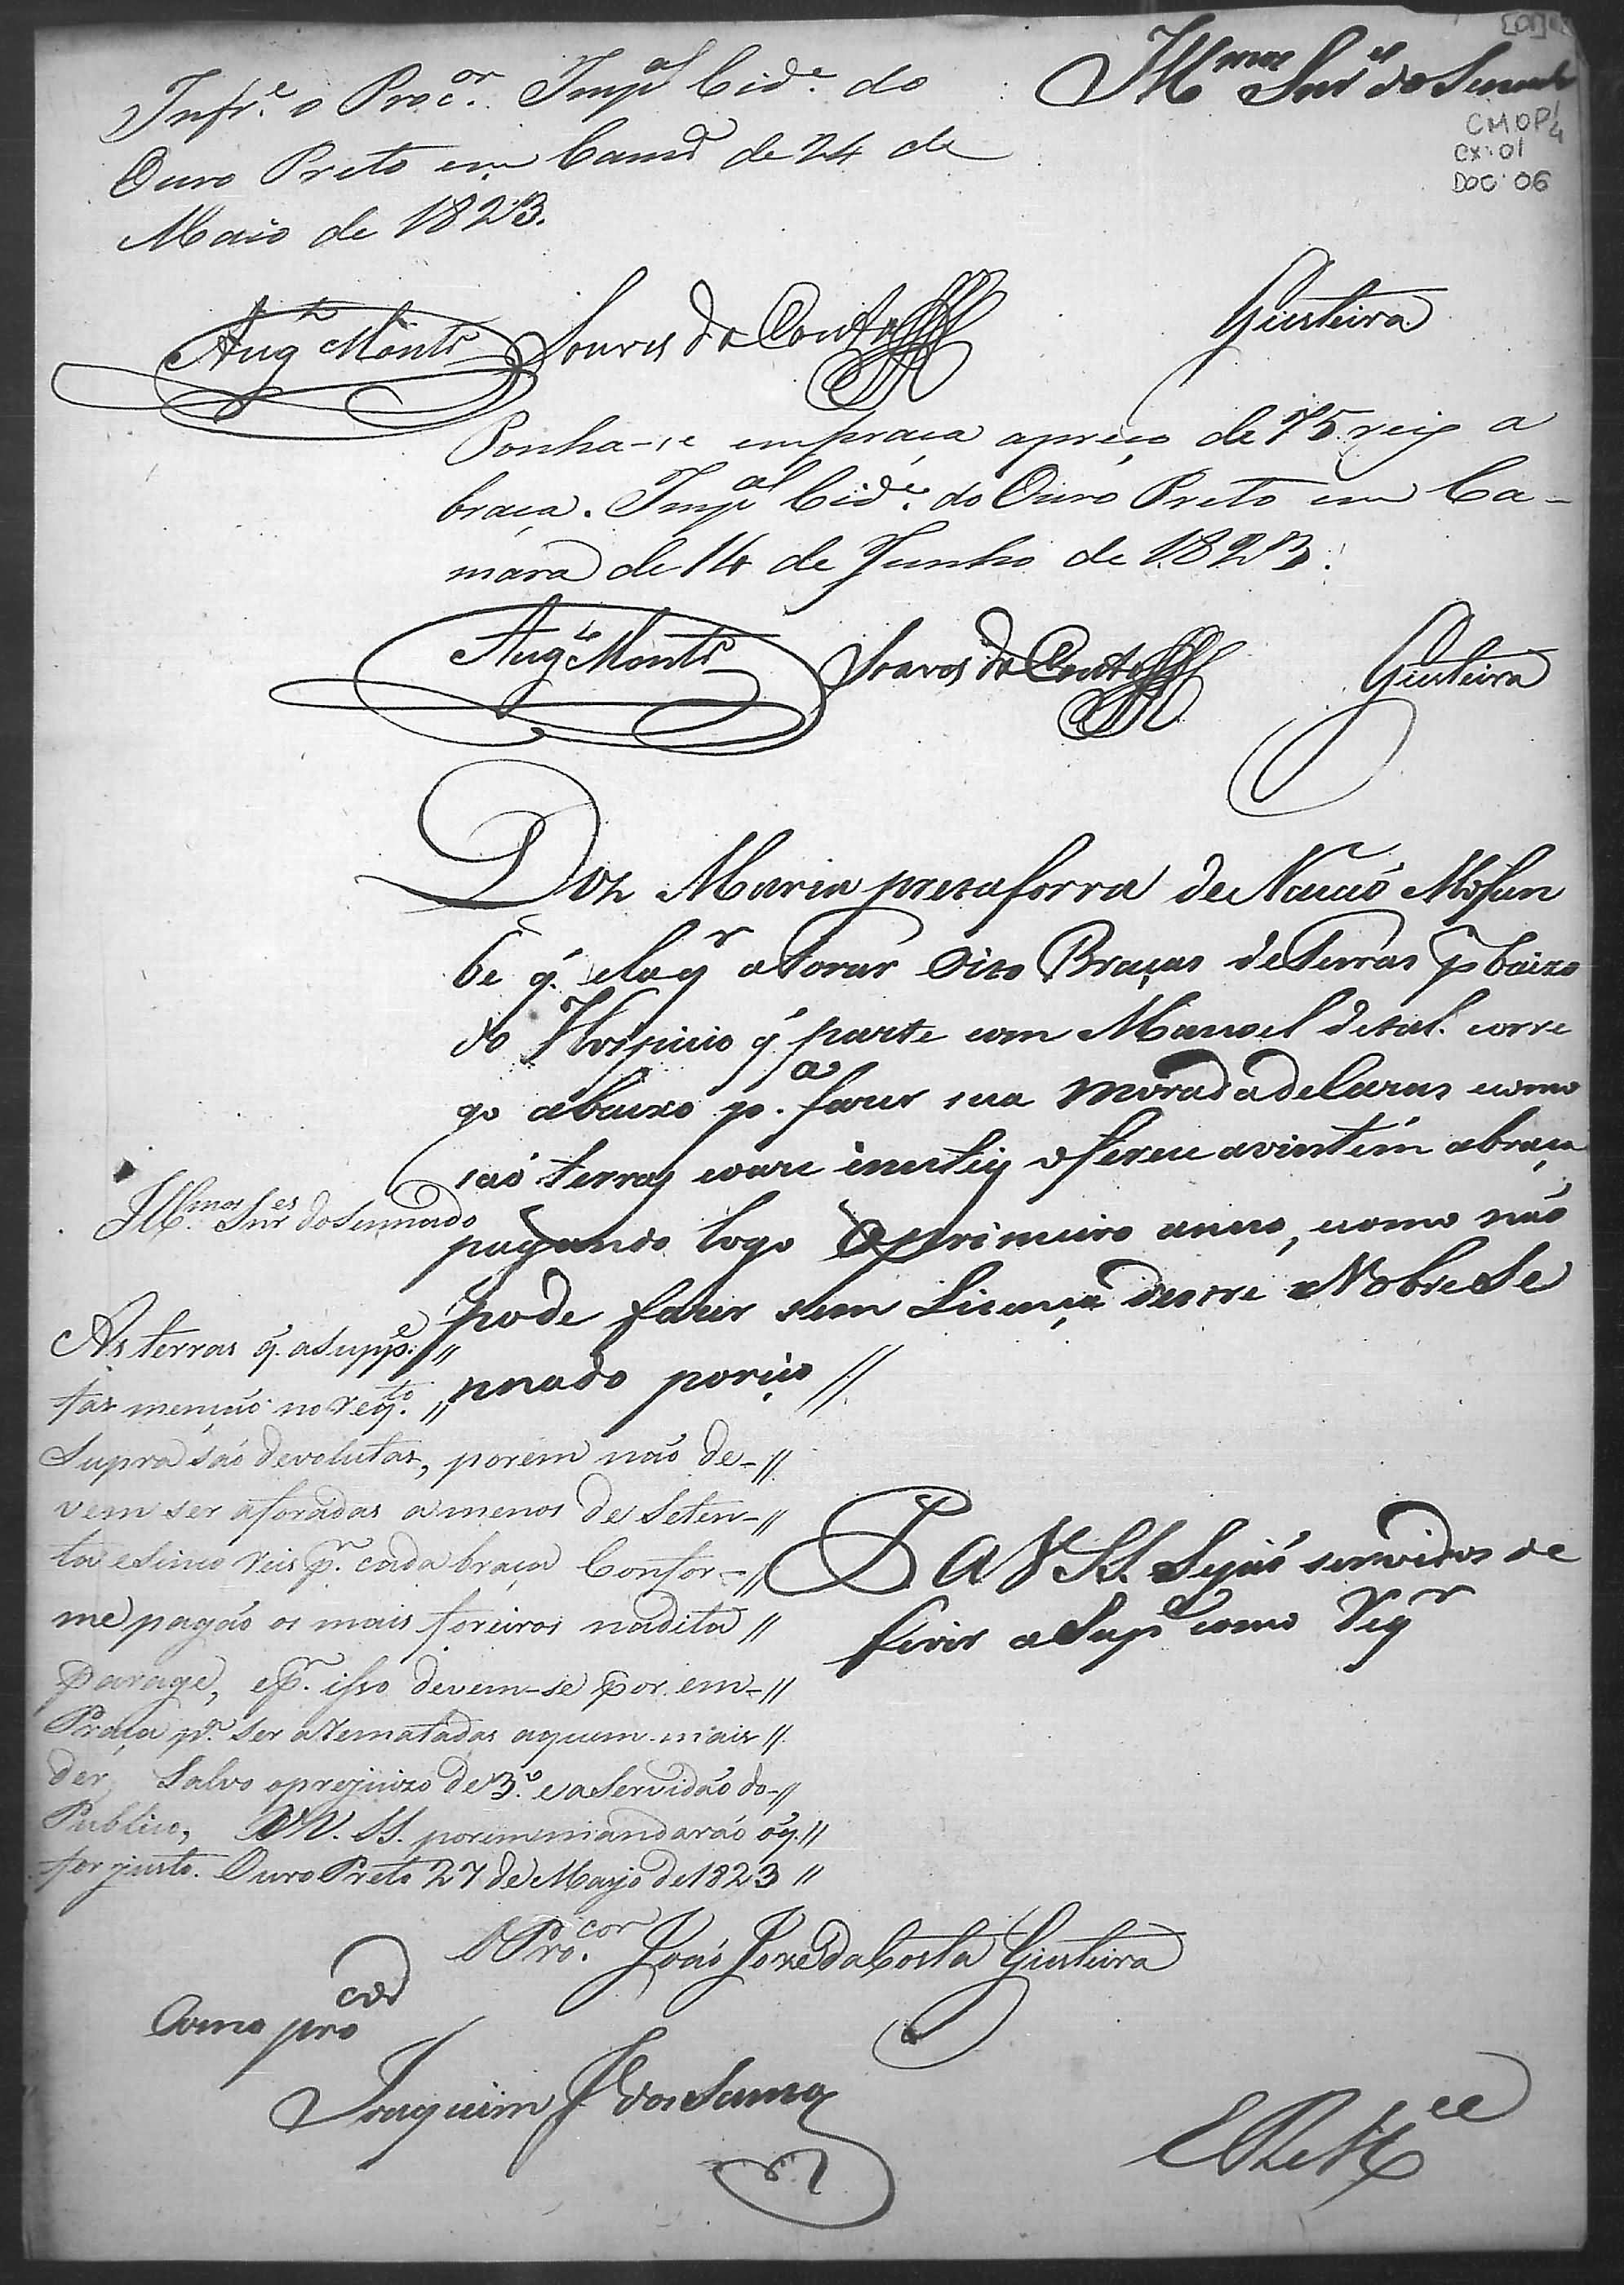 Infr.e o Proc.or Imp.al Cid.e do
Ouro Preto em Cam.a de 24 de
Maio de 1823.
Ill.mos Snr.es do Senado
[01]
CMOP/4
CX: 01
DOC: 06
Aug.to Montr.o Soares do Couto Giesteira
Ponha-se em praça a preço de 75 reis a
braça. Imp.al Cid.e do Ouro Preto em Ca-
mara de 14 de Junho de 1823.
Aug.to Montr.o Soares do Couto Giesteira
Diz Maria preta forra de Nacaó Mosan
be q. ela q.r aForar Oito Braças de Terras p.r baixo
do Hospicio q. parte com Manoel de tal. corre
go abaixo p.a fazer sua morada de Cazas e como
saó terras inutiys oferece a vintém a braça
pagando logo o primeiro anno, e como não
pode fazer sem Licença desse Nobre Se
nnado por iço //
P. A V.SS. Sejaó servidos de
ferir a Sup.e como Req.r
Ill.mos Snr.es do Sennado
As terras q. a supp.e //
faz menção no req.to //
supra são devolutas, porém não de-//
vem ser aforadas a menos de seten-//
ta e sinco reis p.r cada braça Confor-//
me pagão os mais foreiros na dita //
parage, e p.r isso devem-se por em-//
Praça p.a ser arematadas a quem mais //
der, Salvo o prejuizo de 3.o e a Servidão do-//
Publico, VV. SS. porem mandarão o q. //
for justo. Ouro Preto 27 de Mayo de 1823 //
O Pro.cor João Joze da Costa Giesteira
Como pro.cor
Joaquim J.e dos Santos
E R M.ce